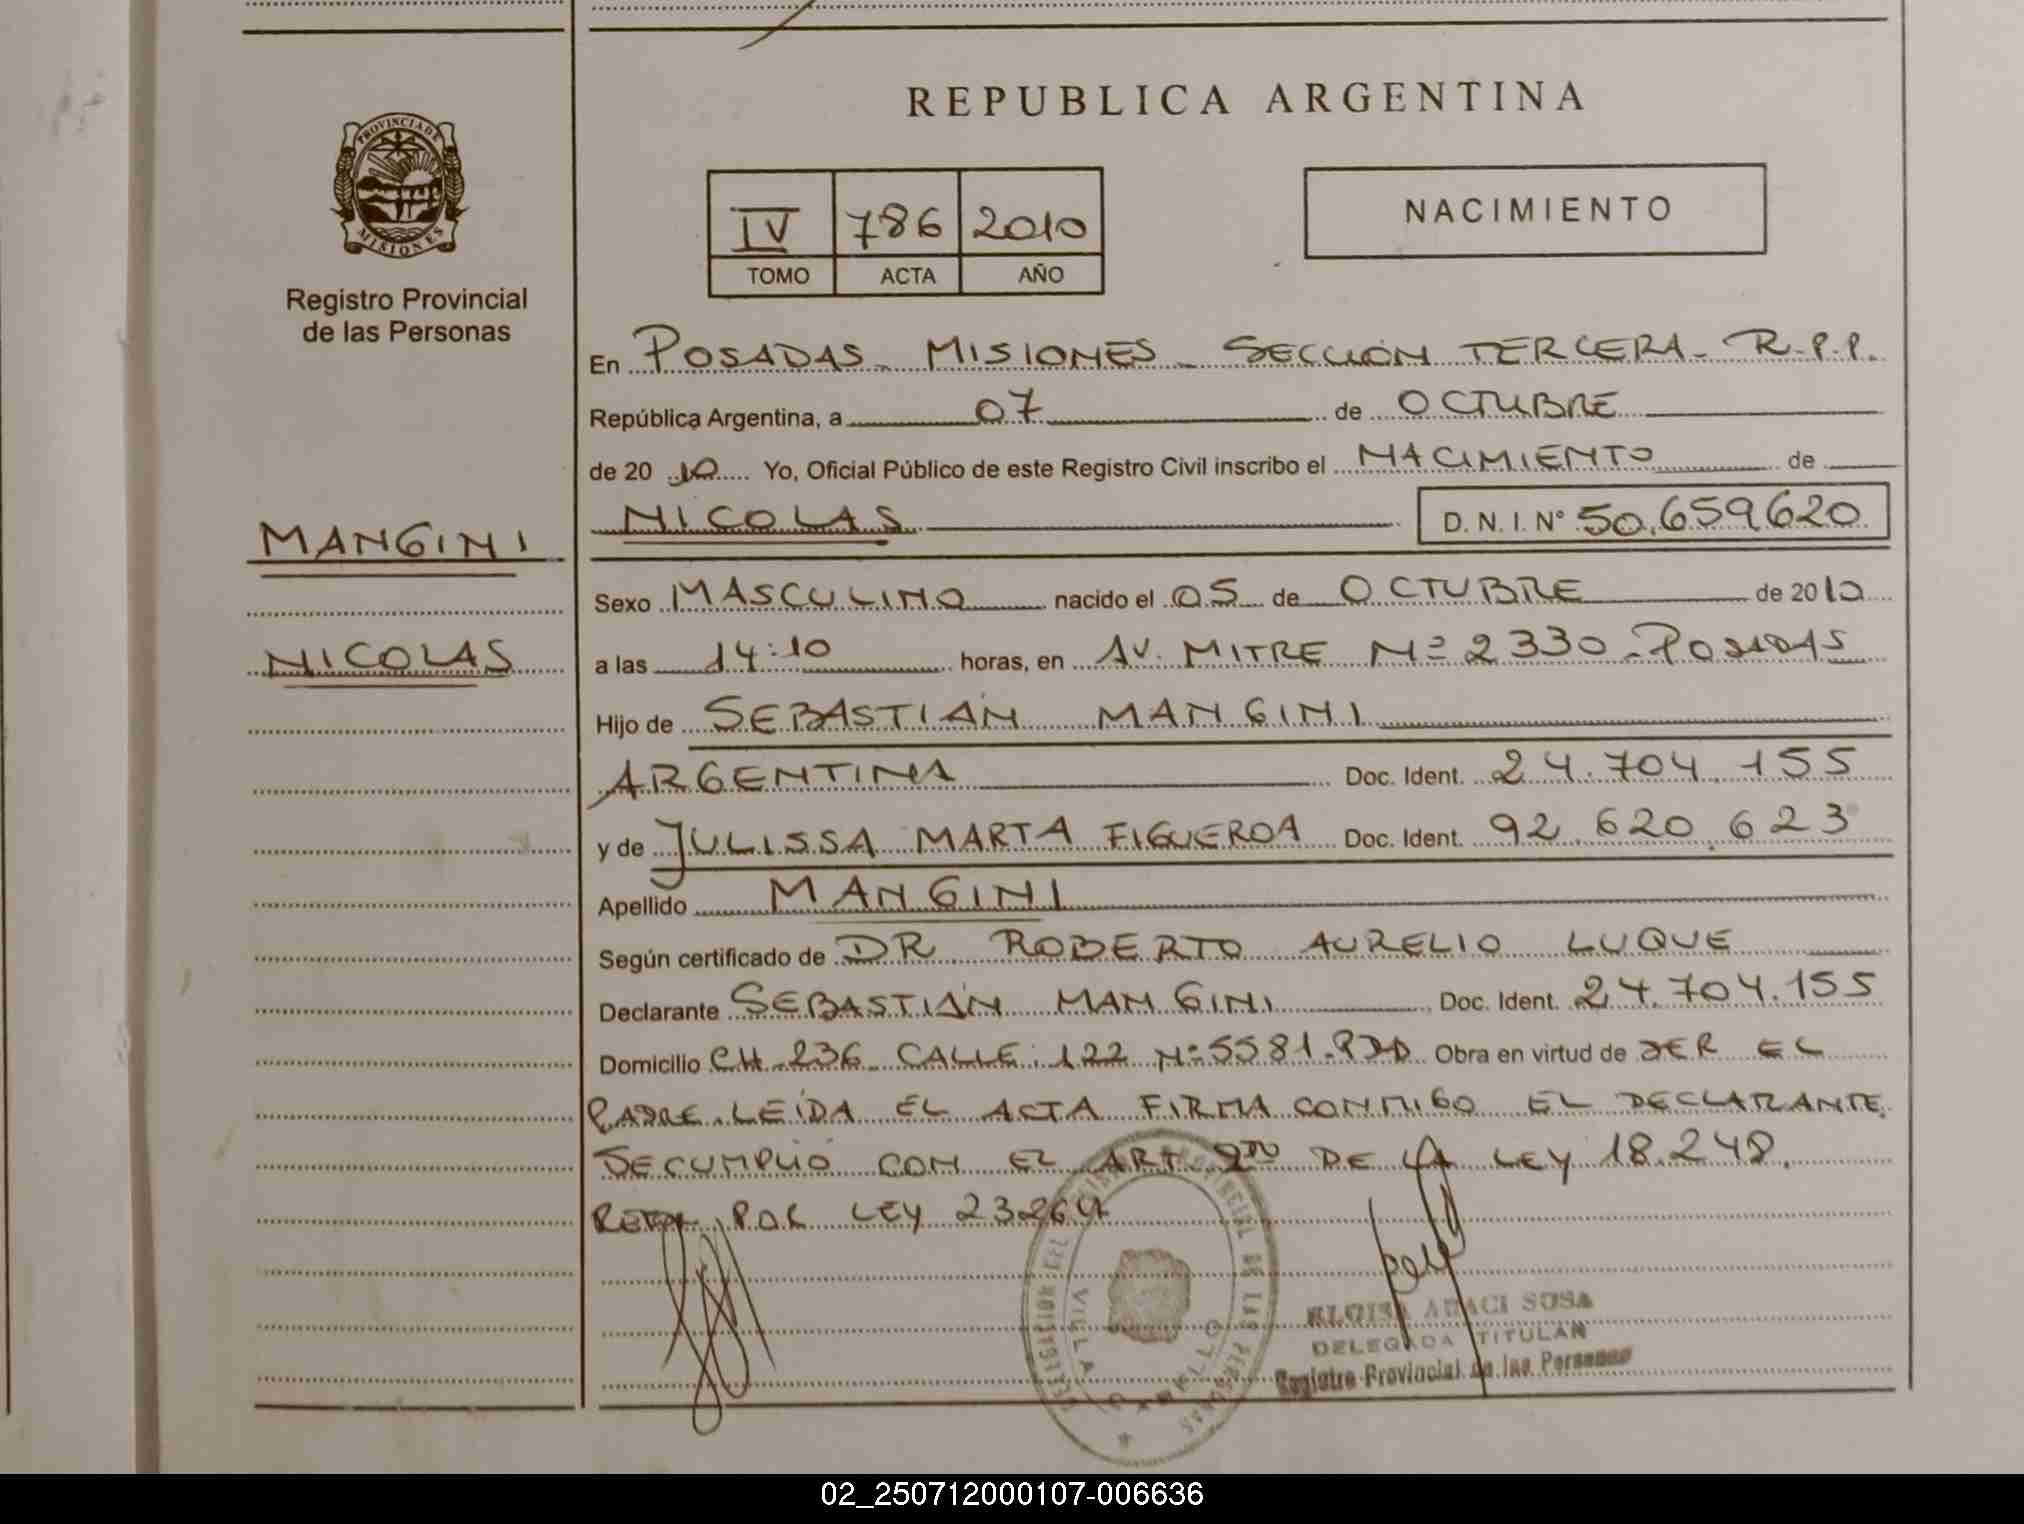 REPUBLICA ARGENTINA
PROVINCIA DE
MISIONES
Registro Provincial
de las Personas
IV 786 2010
TOMO ACTA AÑO
NACIMIENTO
En POSADAS - MISIONES - SECCIÓN TERCERA - R.P.P.
República Argentina, a 07 de OCTUBRE
de 20 10 Yo, Oficial Público de este Registro Civil inscribo el NACIMIENTO de
NICOLAS D. N. I. N° 50.659620
MANGINI
NICOLAS
Sexo MASCULINO nacido el 05 de OCTUBRE de 2010
a las 14:10 horas, en AV. MITRE Nº 2330 - POSADAS
Hijo de SEBASTIÁN MANGINI
ARGENTINA Doc. Ident. 24.704.155
y de JULISSA MARTA FIGUEROA Doc. Ident. 92.620.623
Apellido MANGINI
Según certificado de DR ROBERTO AURELIO LUQUE
Declarante SEBASTIÁN MANGINI Doc. Ident. 24.704.155
Domicilio CH. 236 CALLE 122 Nº 5581 Obra en virtud de SER EL
PADRE. LEÍDA EL ACTA FIRMA CONMIGO EL DECLARANTE.
SE CUMPLIÓ CON EL ART. DE LA LEY 18.248.
POR LEY 23264
ELOISA SOSA
DELEGADA TITULAR
Registro Provincial de las Personas
02_250712000107-006636